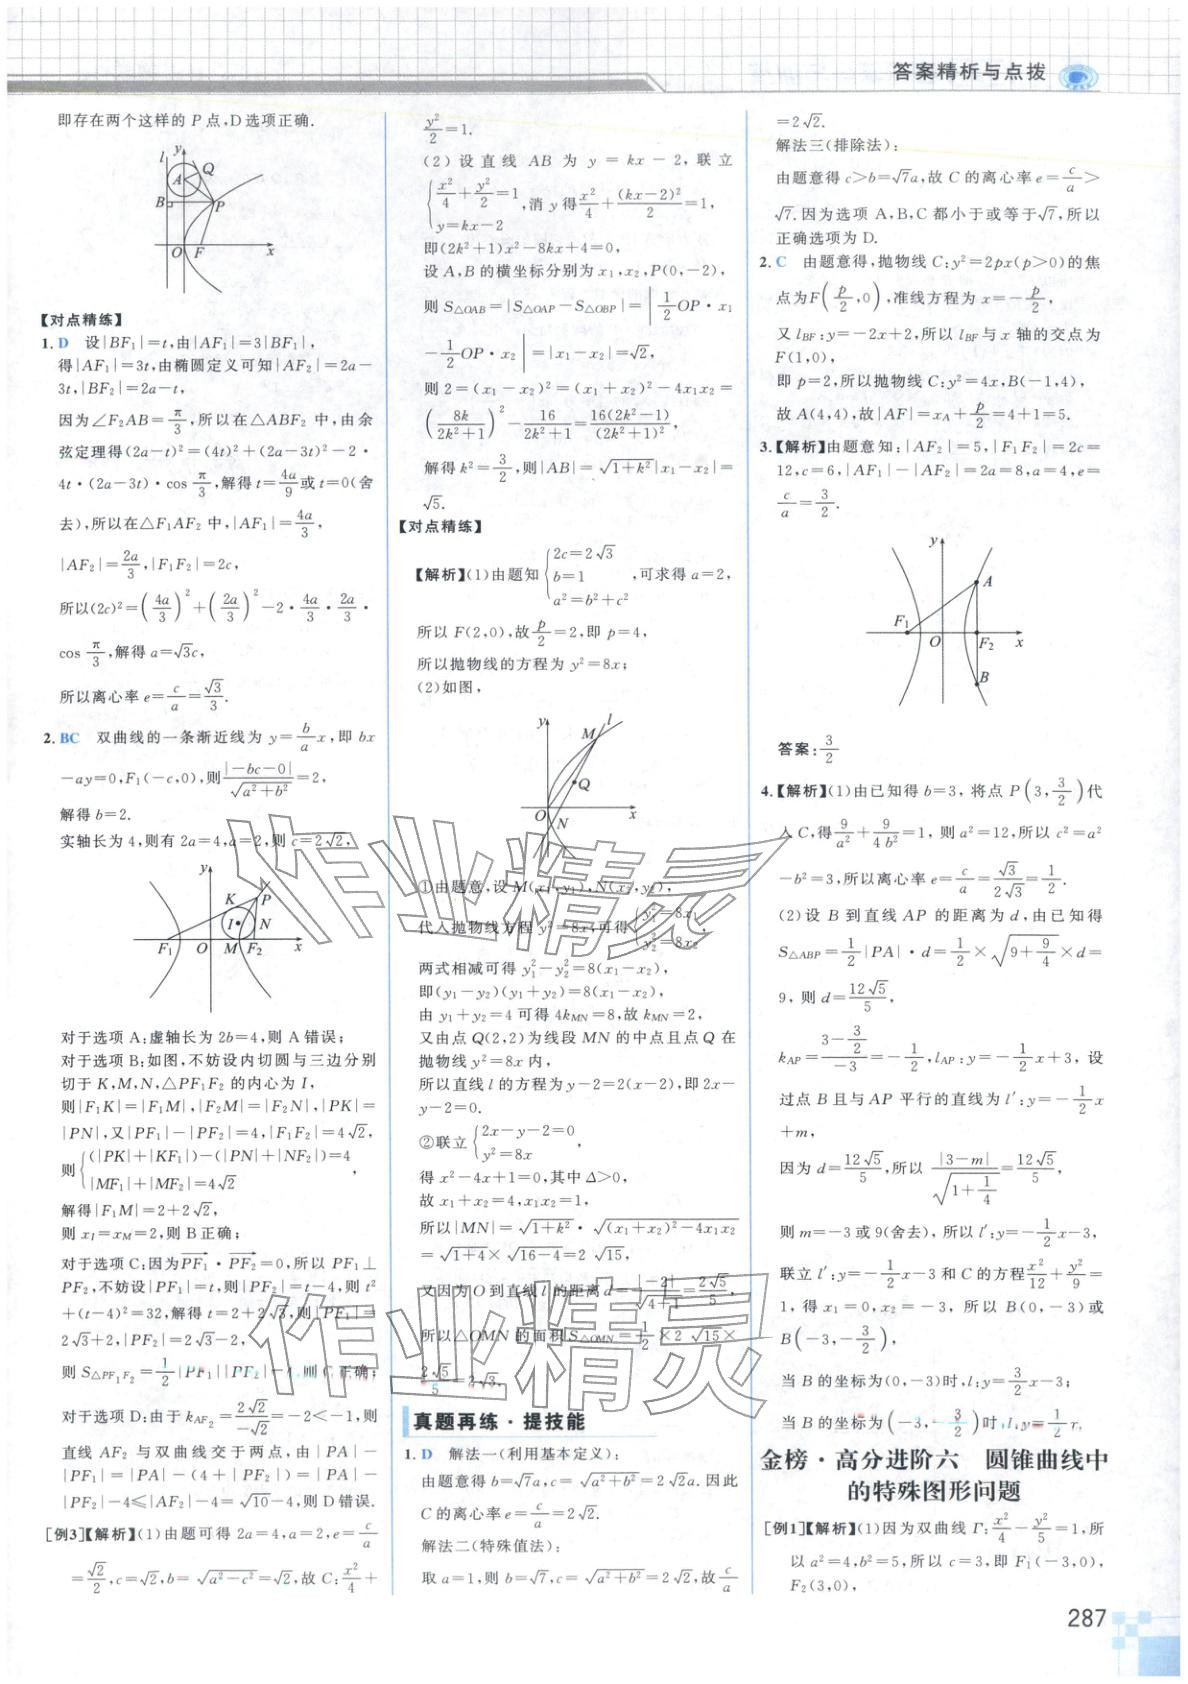 答案精析与点拨
即存在两个这样的 P 点,D选项正确.
l y A Q B P O F x
【对点精练】
1. D 设|BF₁|=t,由|AF₁|=3|BF₁|,
得|AF₁|=3t,由椭圆定义可知|AF₂|=2a-
3t,|BF₂|=2a-t,
因为∠F₂AB=π/3,所以在△ABF₂ 中,由余
弦定理得(2a-t)²=(4t)²+(2a-3t)²-2·
4t·(2a-3t)·cos π/3,解得 t=4a/9或 t=0(舍
去),所以在△F₁AF₂ 中,|AF₁|=4a/3,
|AF₂|=2a/3,|F₁F₂|=2c,
所以(2c)²=(4a/3)²+(2a/3)²-2·4a/3·2a/3·
cos π/3,解得 a=√3c,
所以离心率 e=c/a=√3/3.
2. BC 双曲线的一条渐近线为 y=b/a x,即 bx
-ay=0,F₁(-c,0),则|-bc-0|/√(a²+b²)=2,
解得 b=2.
实轴长为 4,则有 2a=4,a=2,则 c=2√2,
y K P I N F₁ O M F₂ x
对于选项 A:虚轴长为 2b=4,则 A 错误;
对于选项 B:如图,不妨设内切圆与三边分别
切于 K,M,N,△PF₁F₂ 的内心为 I,
则|F₁K|=|F₁M|,|F₂M|=|F₂N|,|PK|=
|PN|,又|PF₁|-|PF₂|=4,|F₁F₂|=4√2,
则{(|PK|+|KF₁|)-(|PN|+|NF₂|)=4
|MF₁|+|MF₂|=4√2,
解得|F₁M|=2+2√2,
则 x_I=x_M=2,则 B 正确;
对于选项 C:因为PF₁→·PF₂→=0,所以 PF₁⊥
PF₂,不妨设|PF₁|=t,则|PF₂|=t-4,则 t²
+(t-4)²=32,解得 t=2+2√3,则|PF₁|=
2√3+2,|PF₂|=2√3-2,
则 S△PF₁F₂=1/2|PF₁||PF₂|=4,则 C 正确;
对于选项 D:由于 k_AF₂=2√2/-√2=-2<-1,则
直线 AF₂ 与双曲线交于两点,由|PA|-
|PF₁|=|PA|-(4+|PF₂|)=|PA|-
|PF₂|-4≤|AF₂|-4=√10-4,则 D 错误.
[例3]【解析】(1)由题可得 2a=4,a=2,e=c/a
=√2/2,c=√2,b=√(a²-c²)=√2,故 C:x²/4+
y²/2=1.
(2)设直线 AB 为 y=kx-2,联立
{x²/4+y²/2=1
y=kx-2,消 y 得x²/4+(kx-2)²/2=1,
即(2k²+1)x²-8kx+4=0,
设 A,B 的横坐标分别为 x₁,x₂,P(0,-2),
则 S△OAB=|S△OAP-S△OBP|=|1/2OP·x₁
-1/2OP·x₂|=|x₁-x₂|=√2,
则 2=(x₁-x₂)²=(x₁+x₂)²-4x₁x₂=
(8k/(2k²+1))²-16/(2k²+1)=16(2k²-1)/(2k²+1)²,
解得 k²=3/2,则|AB|=√(1+k²)|x₁-x₂|=
√5.
【对点精练】
【解析】(1)由题知{2c=2√3
b=1
a²=b²+c²,可求得 a=2,
所以 F(2,0),故p/2=2,即 p=4,
所以抛物线的方程为 y²=8x;
(2)如图,
y l M Q O N x
①由题意,设 M(x₁,y₁),N(x₂,y₂),
代入抛物线方程 y²=8x,可得{y₁²=8x₁
y₂²=8x₂
两式相减可得 y₁²-y₂²=8(x₁-x₂),
即(y₁-y₂)(y₁+y₂)=8(x₁-x₂),
由 y₁+y₂=4 可得 4k_MN=8,故 k_MN=2,
又由点 Q(2,2)为线段 MN 的中点且点 Q 在
抛物线 y²=8x 内,
所以直线 l 的方程为 y-2=2(x-2),即 2x-
y-2=0.
②联立{2x-y-2=0
y²=8x,
得 x²-4x+1=0,其中 Δ>0,
故 x₁+x₂=4,x₁x₂=1,
所以|MN|=√(1+k²)·√((x₁+x₂)²-4x₁x₂)
=√(1+4)×√(16-4)=2√15,
又因为 O 到直线 l 的距离 d=|-2|/√(4+1)=2√5/5,
所以△OMN 的面积 S△OMN=1/2×2√15×
2√5/5=2√3.
真题再练·提技能
1. D 解法一(利用基本定义):
由题意得 b=√7a,c=√(a²+b²)=2√2a.因此
C 的离心率 e=c/a=2√2.
解法二(特殊值法):
取 a=1,则 b=√7,c=√(a²+b²)=2√2,故c/a
=2√2.
解法三(排除法):
由题意得 c>b=√7a,故 C 的离心率 e=c/a>
√7.因为选项 A,B,C 都小于或等于√7,所以
正确选项为 D.
2. C 由题意得,抛物线 C:y²=2px(p>0)的焦
点为F(p/2,0),准线方程为 x=-p/2,
又 l_BF:y=-2x+2,所以 l_BF与 x 轴的交点为
F(1,0),
即 p=2,所以抛物线 C:y²=4x,B(-1,4),
故 A(4,4),故|AF|=x_A+p/2=4+1=5.
3.【解析】由题意知:|AF₂|=5,|F₁F₂|=2c=
12,c=6,|AF₁|-|AF₂|=2a=8,a=4,e=
c/a=3/2.
y A F₁ O F₂ x B
答案:3/2
4.【解析】(1)由已知得 b=3, 将点 P(3,3/2)代
入 C,得9/a²+9/4b²=1, 则 a²=12,所以 c²=a²
-b²=3,所以离心率 e=c/a=√3/2√3=1/2.
(2)设 B 到直线 AP 的距离为 d,由已知得
S△ABP=1/2|PA|·d=1/2×√(9+9/4)×d=
9,则 d=12√5/5,
k_AP=(3-3/2)/-3=-1/2,l_AP:y=-1/2x+3, 设
过点 B 且与 AP 平行的直线为 l′:y=-1/2x
+m,
因为 d=12√5/5,所以|3-m|/√(1+1/4)=12√5/5,
则 m=-3或9(舍去),所以 l′:y=-1/2x-3,
联立 l′:y=-1/2x-3 和 C 的方程x²/12+y²/9=
1,得 x₁=0,x₂=-3, 所以 B(0,-3)或
B(-3,-3/2),
当 B 的坐标为(0,-3)时,l:y=3/2x-3;
当 B 的坐标为(-3,-3/2)时,l:y=1/2x.
金榜·高分进阶六 圆锥曲线中
的特殊图形问题
[例1]【解析】(1)因为双曲线 Γ:x²/4-y²/5=1,所
以 a²=4,b²=5,所以 c=3,即 F₁(-3,0),
F₂(3,0),
287
作业精灵
作业精灵